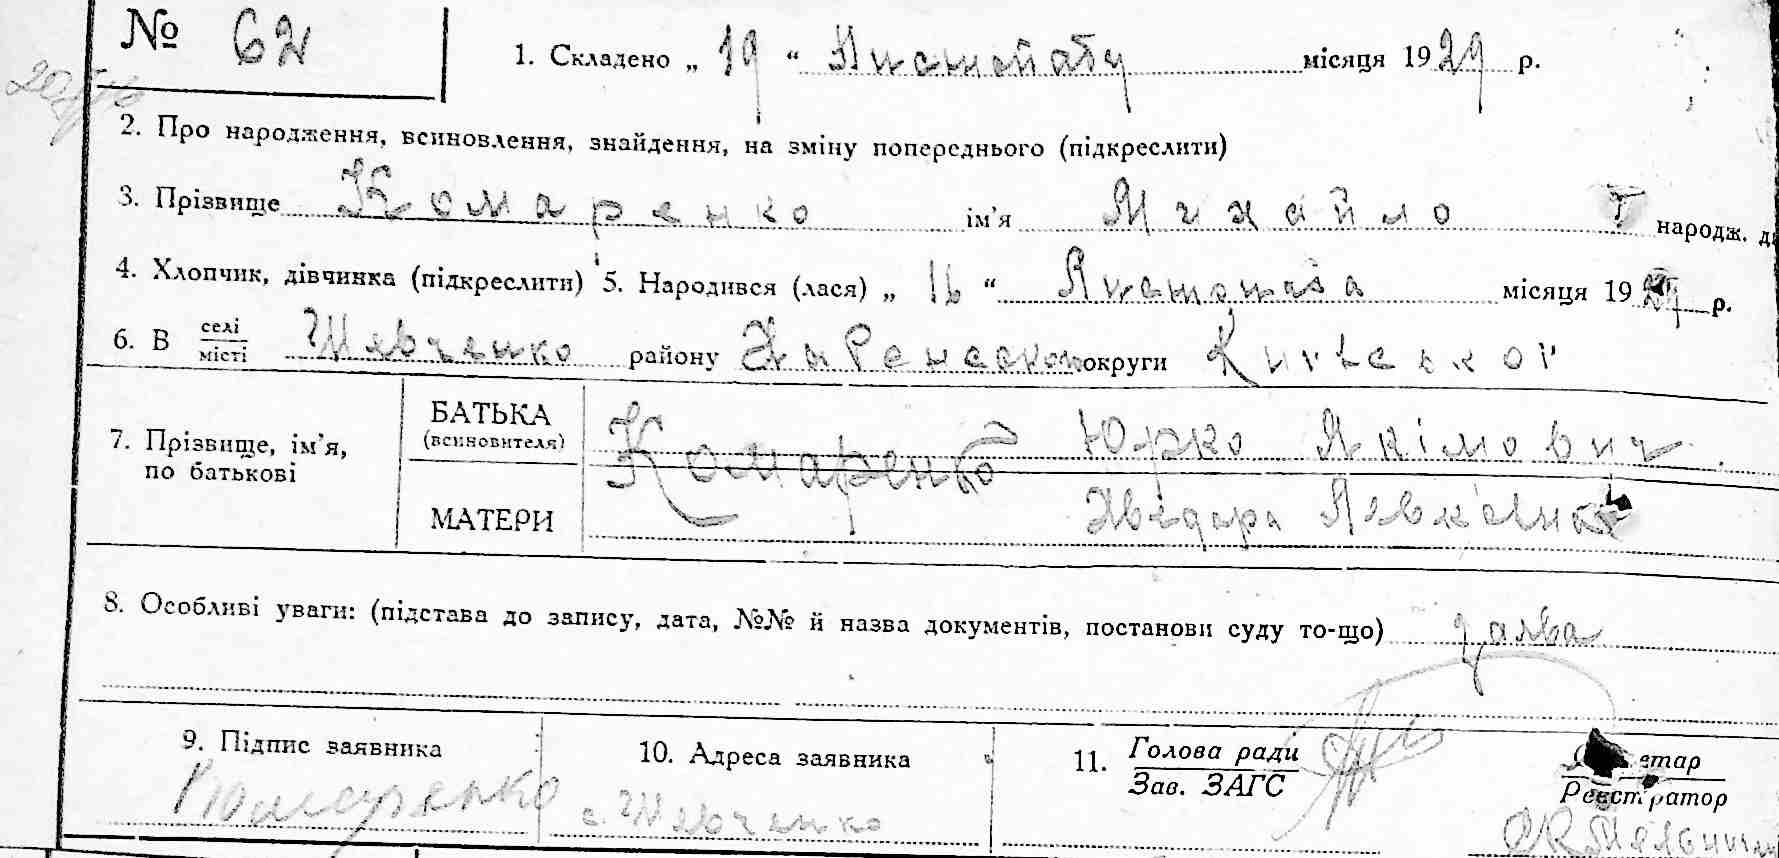 № 62
1. Складено „ 19 “ Листопаду місяця 1929 р.
2. Про народження, всиновлення, знайдення, на зміну попереднього (підкреслити)
3. Прізвище Комаренко ім’я Михайло I народж. д
4. Хлопчик, дівчинка (підкреслити) 5. Народився (лася) „ 16 “ Листопада місяця 1929 р.
6. В селі/місті Шевченко району округи Київської
7. Прізвище, ім’я, по батькові
БАТЬКА (всиновителя) Комаренко Юрко Якімович
МАТЕРИ Хведора
8. Особливі уваги: (підстава до запису, дата, №№ й назва документів, постанови суду то-що)
9. Підпис заявника
Комаренко
10. Адреса заявника
с. Шевченко
11. Голова ради
Зав. ЗАГС
етар
Реєстратор